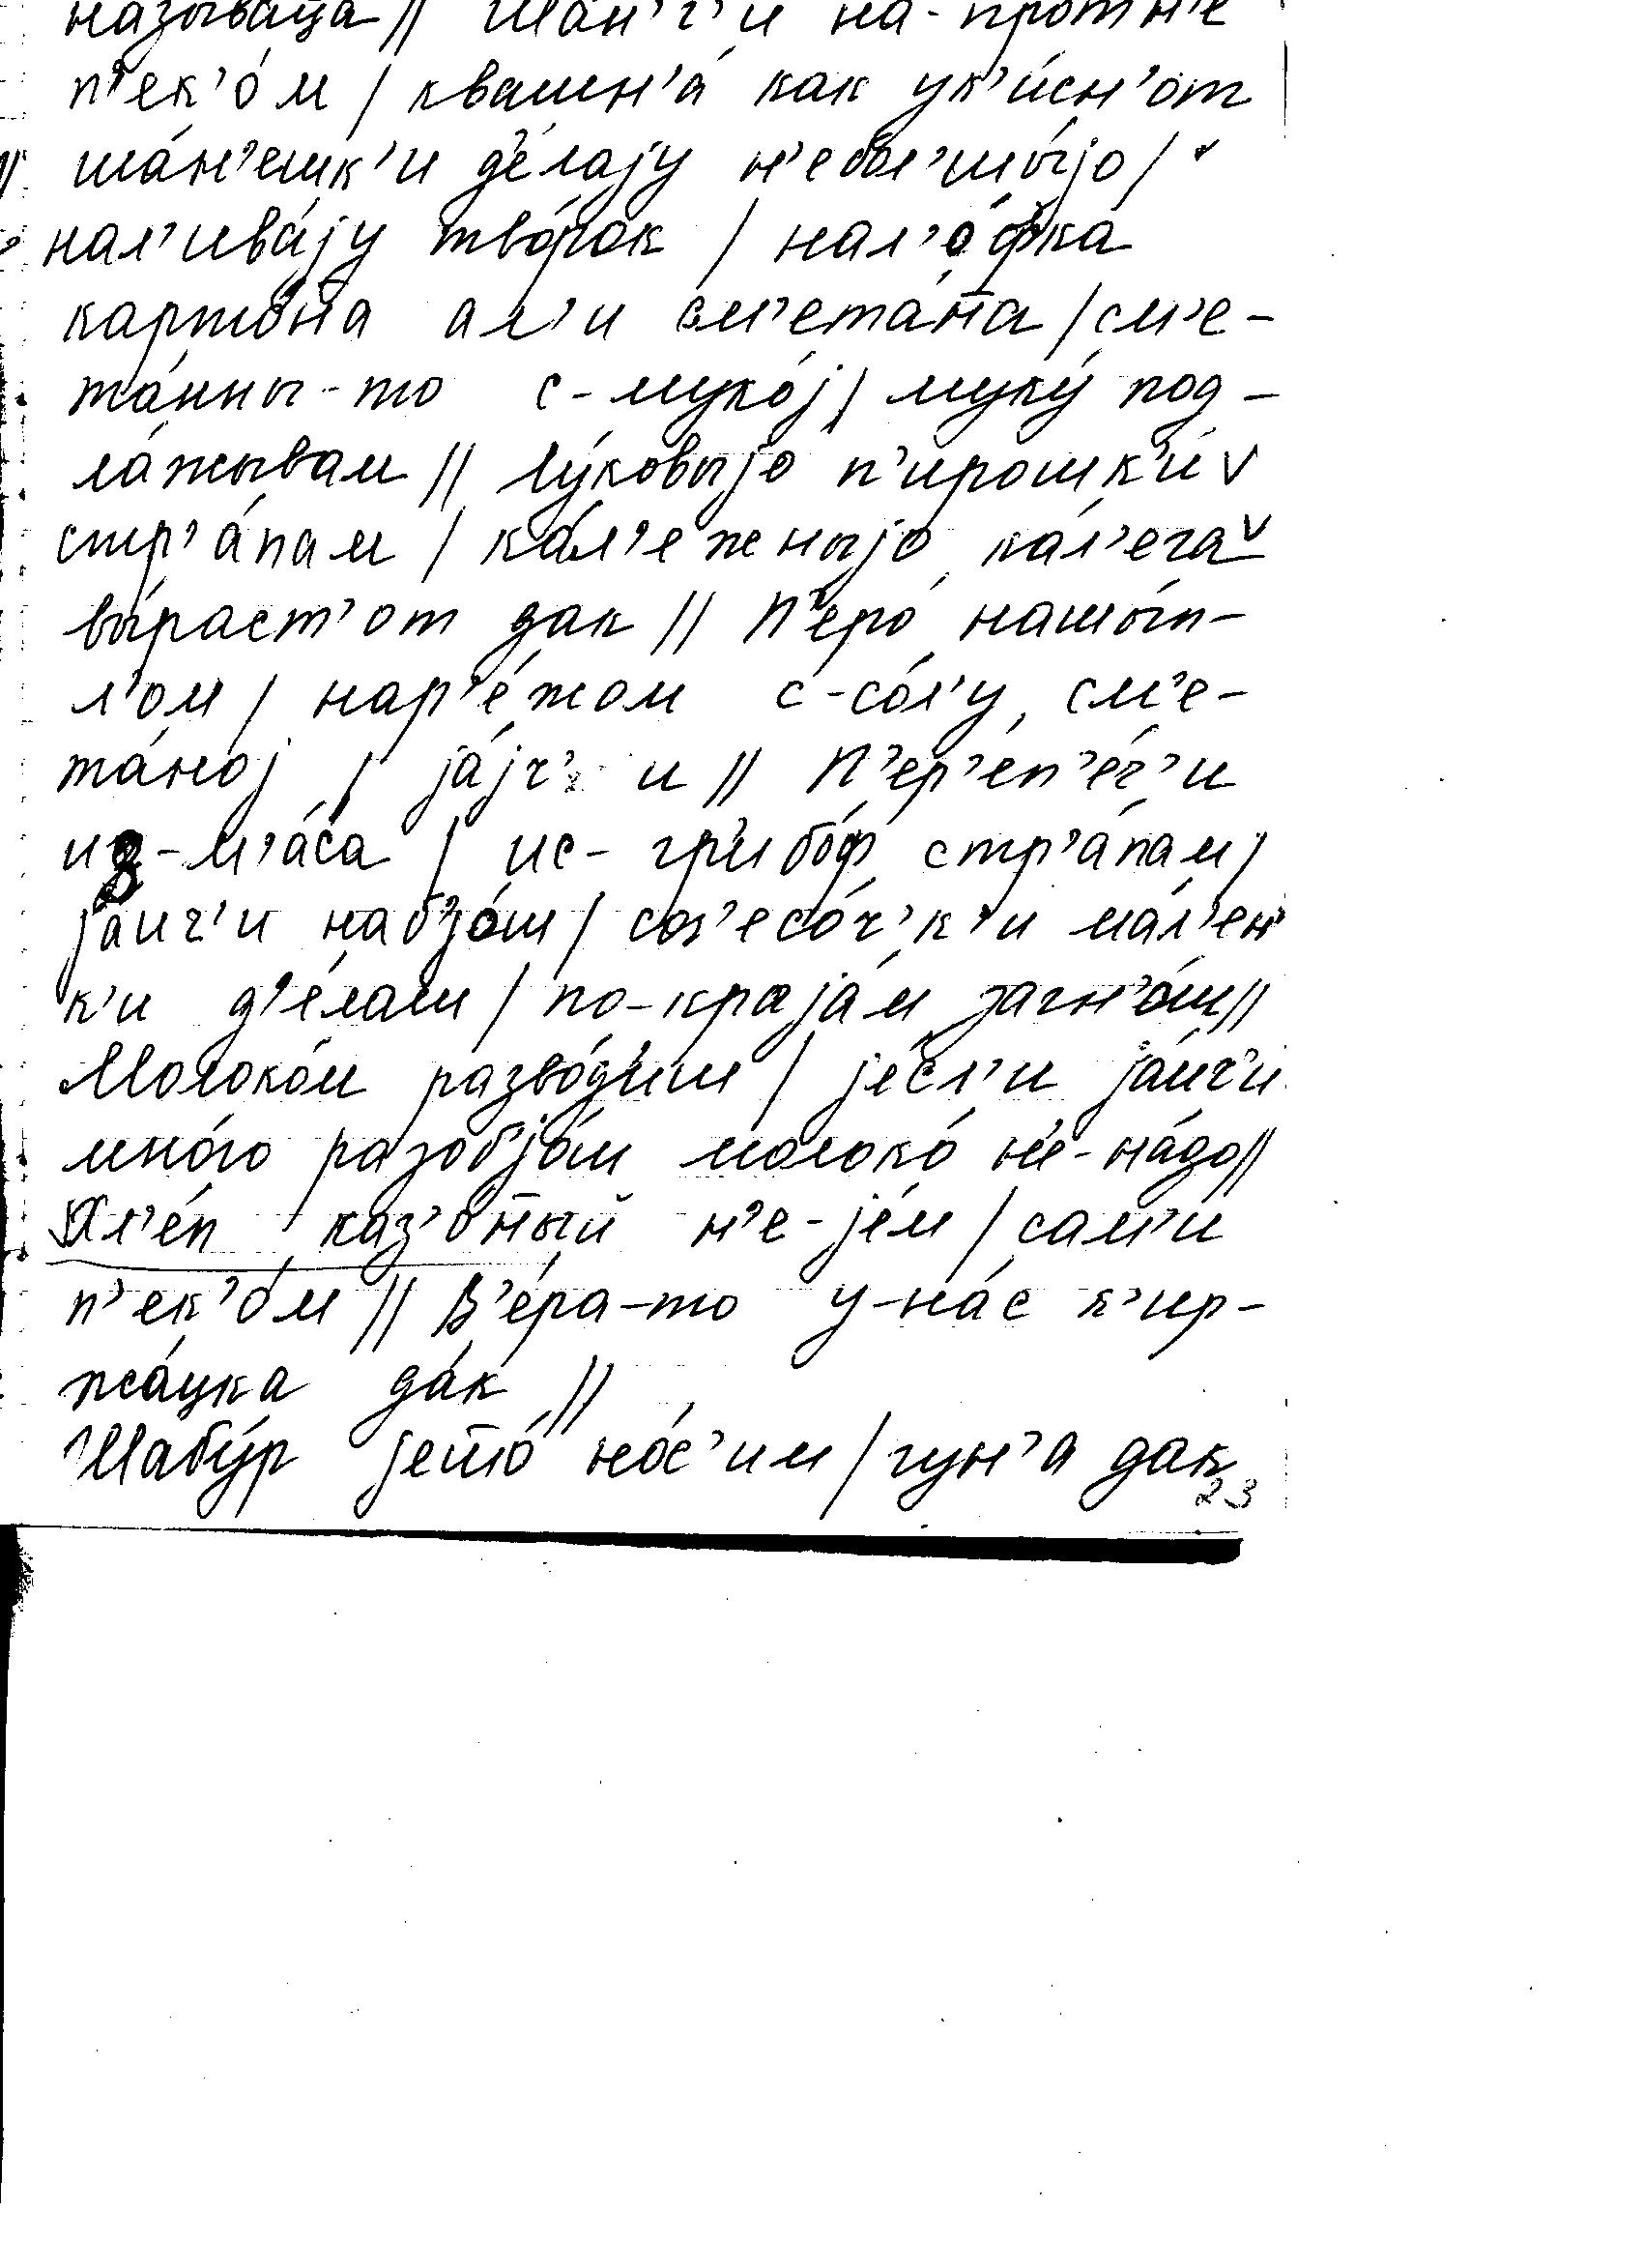 называ́ца // Ша́н'г'и на-прот'н'е
п'ек'о́м / квашн'а́ как ук'и́сн'от
ша́н'ешк'и д'е́лају н'ебол'шы́јо /
нал'ива́ју тво́рок / нал'о́фка
карто́вна ал'и см'ета́на / см'е-
та́нны-то с-муко́ј / муку́ под-
ла́жывам // Лу́ковыјо п'ирошк'и́
стр'а́пам / кал'ежныјо кал'ега
вы́раст'от дак // П'еро́ нашы́п-
л'ом / нар'е́жом с-со́л'у, см'е-
та́ној / ја́јч'и // П'ер'еп'е́ч'и
из-м'а́са / ис-гр'ибо́ф стр'а́пам /
јаич'и набјо́м / сол'есо́ч'к'и ма́л'ен'
к'и д'е́лам / по-краја́м загн'о́м //
Молоко́м разво́д'им / је́сл'и јаи́ч'и
мно́го разобјо́м молоко́ н'е-на́до //
Хл'е́п каз'о́ный н'е-је́м / сам'и́
п'ек'о́м // В'е́ра-то у-на́с к'ир-
жа́цка да́к //
Шабу́р јето́ но́с'им / гун'а дак
23